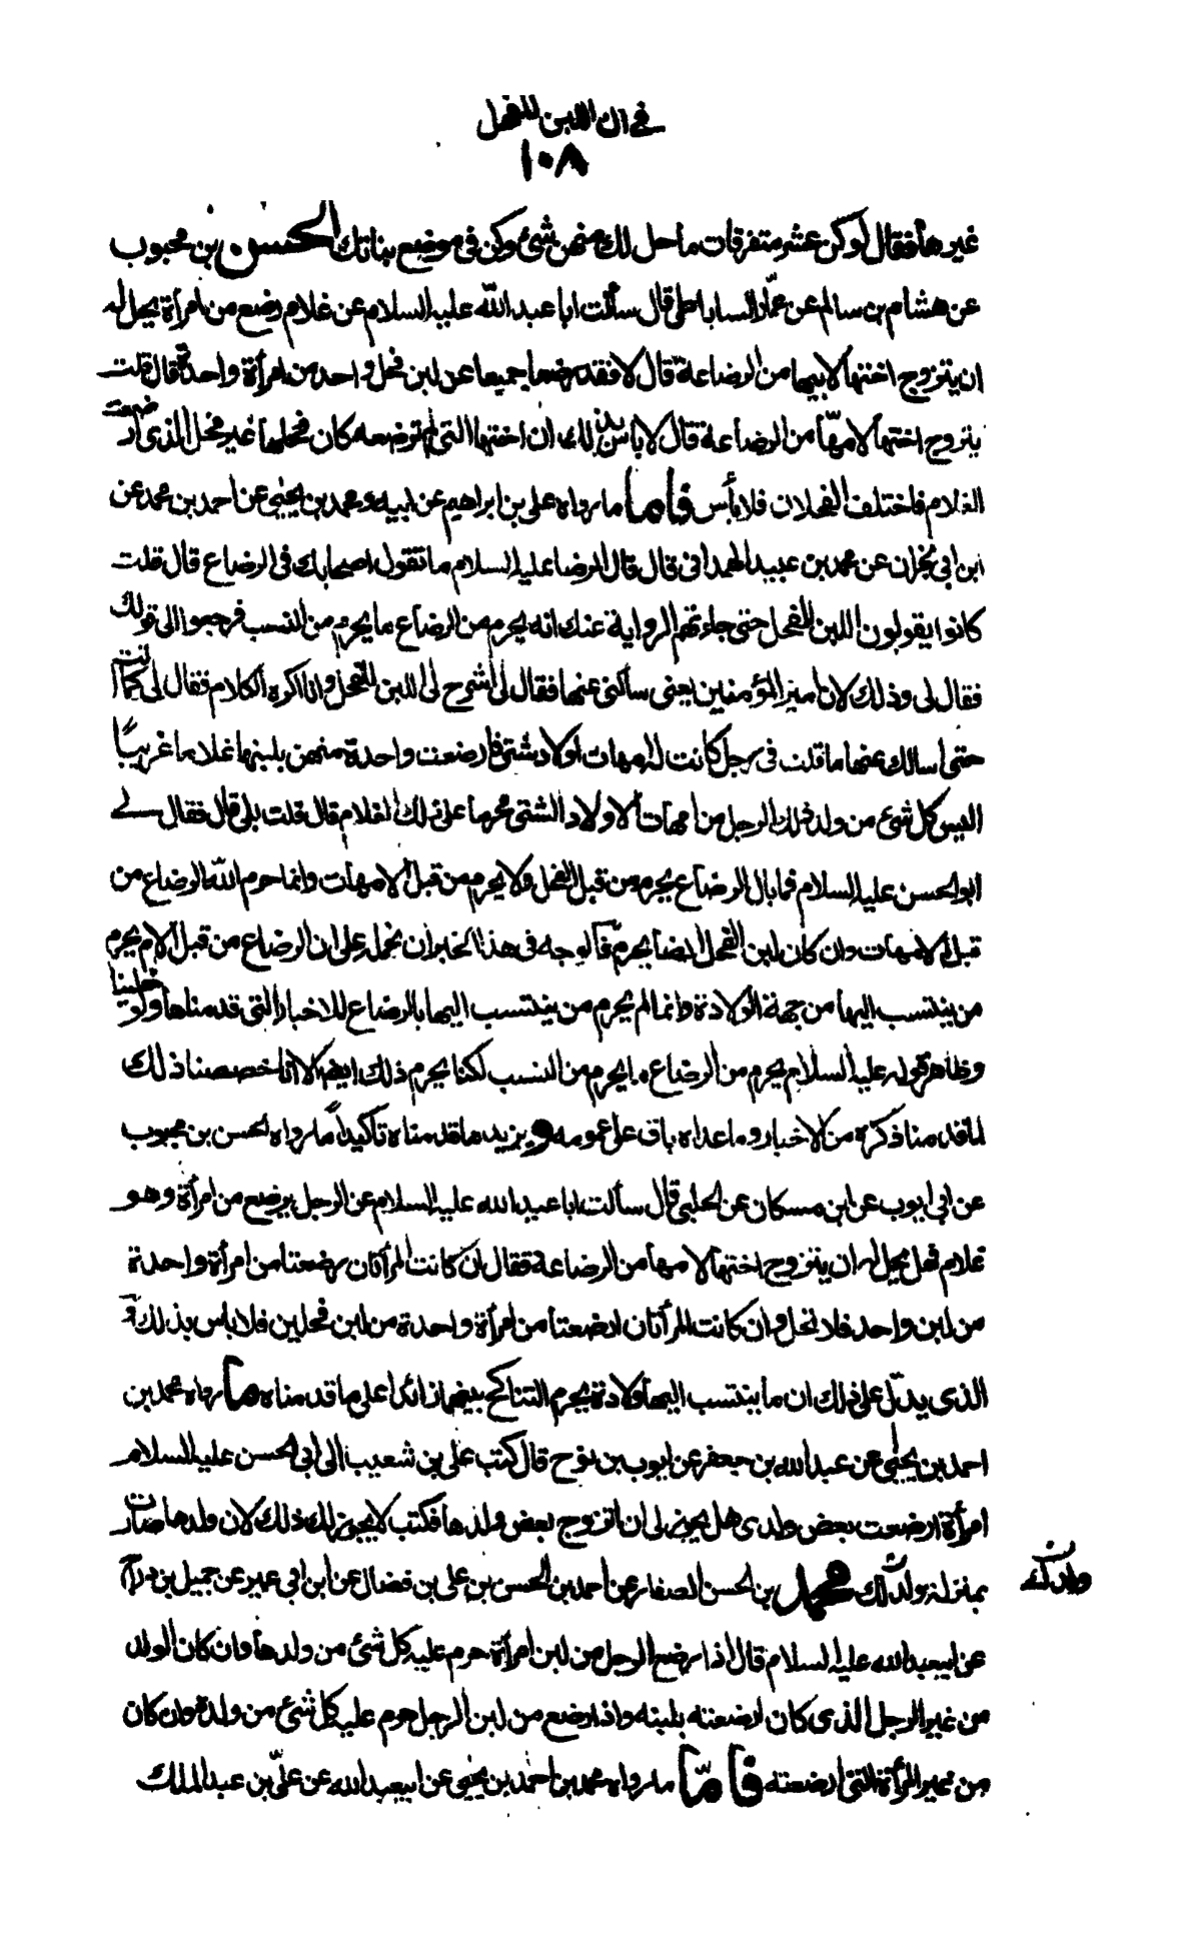 في ان اللبن للفحل
١٠٨
غيرها فقال لو كن عشر متفرقات ما حل لك منهن شئ وكن في موضع بناتك الحسن بن محبوب
عن هشام بن سالم عن عمار الساباطي قال سألت ابا عبد الله عليه السلام عن غلام رضع من امرأة يحل له
ان يتزوج اختها لابيها من الرضاعة قال لا فقد رضعا جميعا من لبن فحل واحد من امرأة واحدة قال قلت
يتزوج اختها لامها من الرضاعة قال لا باس بذلك ان اختها التي لم ترضعه كان فحلها غير فحل الذي ارضعت
الغلام فاختلف الفحلان فلا بأس فاما ما رواه علي بن ابراهيم عن ابيه ومحمد بن يحيى عن احمد بن محمد عن
ابن ابي نجران عن محمد بن عبيد الهمداني قال قال الرضا عليه السلام ما تقول اصحابك في الرضاع قال قلت
كانوا يقولون اللبن للفحل حتى جاءتهم الرواية عنك انه يحرم من الرضاع ما يحرم من النسب فرجعوا الى قولك
فقال لي وذلك لان امير المؤمنين يعني سألني عنها فقال لي اشرح لي اللبن للفحل وانا اكره الكلام فقال لي كما انت
حتى اسالك عنها ما قلت في رجل كانت له امهات اولاد شتى فارضعت واحدة منهن بلبنها غلاما غريبا
اليس كل شئ من ولد ذلك الرجل من امهات الاولاد الشتى محرما على ذلك الغلام قال قلت بلى قال فقال لي
ابو الحسن عليه السلام فما بال الرضاع يحرم من قبل الفحل ولا يحرم من قبل الامهات وانما حرم الله الرضاع من
قبل الامهات وان كان لبن الفحل ايضا يحرم فالوجه في هذا الخبر ان نحمله على ان الرضاع من قبل الام يحرم
من ينتسب اليها من جهة الولادة وانما لم يحرم من ينتسب اليها بالرضاع للاخبار التي قدمناها ولو خلينا
وظاهر قوله عليه السلام يحرم من الرضاع ما يحرم من النسب لكنا نحرم ذلك ايضا الا انا خصصنا ذلك
لما قدمنا ذكره من الاخبار وما عداه باق على عمومه ويزيد ما قدمناه تأكيدا ما رواه الحسن بن محبوب
عن ابي ايوب عن ابن مسكان عن الحلبي قال سألت ابا عبد الله عليه السلام عن الرجل يرضع من امرأة وهو
غلام فهل يحل له ان يتزوج اختها لامها من الرضاعة فقال ان كانت المرأتان رضعتا من امرأة واحدة
من لبن واحد فلا تحل وان كانت المرأتان ارضعتا من امرأة واحدة من لبن فحلين فلا باس بذلك و
الذي يدل على ذلك ان ما ينتسب اليها ولادة يحرم التناكح بينهما زائدا على ما قدمناه ما رواه محمد بن
احمد بن يحيى عن عبد الله بن جعفر عن ايوب بن نوح قال كتب علي بن شعيب الى ابي الحسن عليه السلام
امرأة ارضعت بعض ولدى هل يجوز لي ان اتزوج بعض ولدها فكتب لا يجوز لك ذلك لان ولدها صارت
بمنزلة ولدك محمد بن الحسن الصفار عن احمد بن الحسن بن علي بن فضال عن ابن ابي عمير عن جميل بن دراج
ولدك
عن ابيعبد الله عليه السلام قال اذا رضع الرجل من لبن امرأة حرم عليه كل شئ من ولدها وان كان الولد
من غير الرجل الذي كان ارضعته بلبنه واذا رضع من لبن الرجل حرم عليه كل شئ من ولده وان كان
من غير المرأة التي ارضعته فاما ما رواه محمد بن احمد بن يحيى عن ابيعبد الله عن علي بن عبد الملك